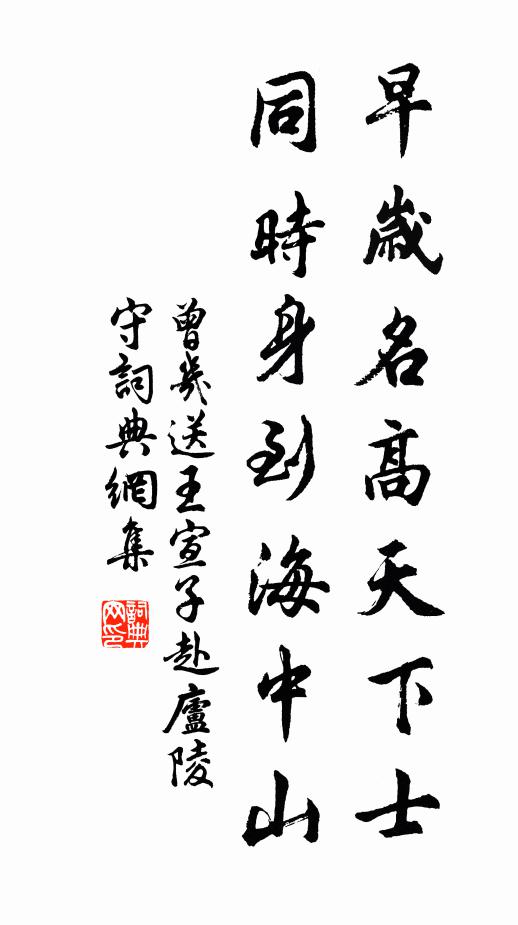 早歲名高天下士
同時身到海中山
曾幾送王宣子赴廬陵
守詞典網集
詞典
网印